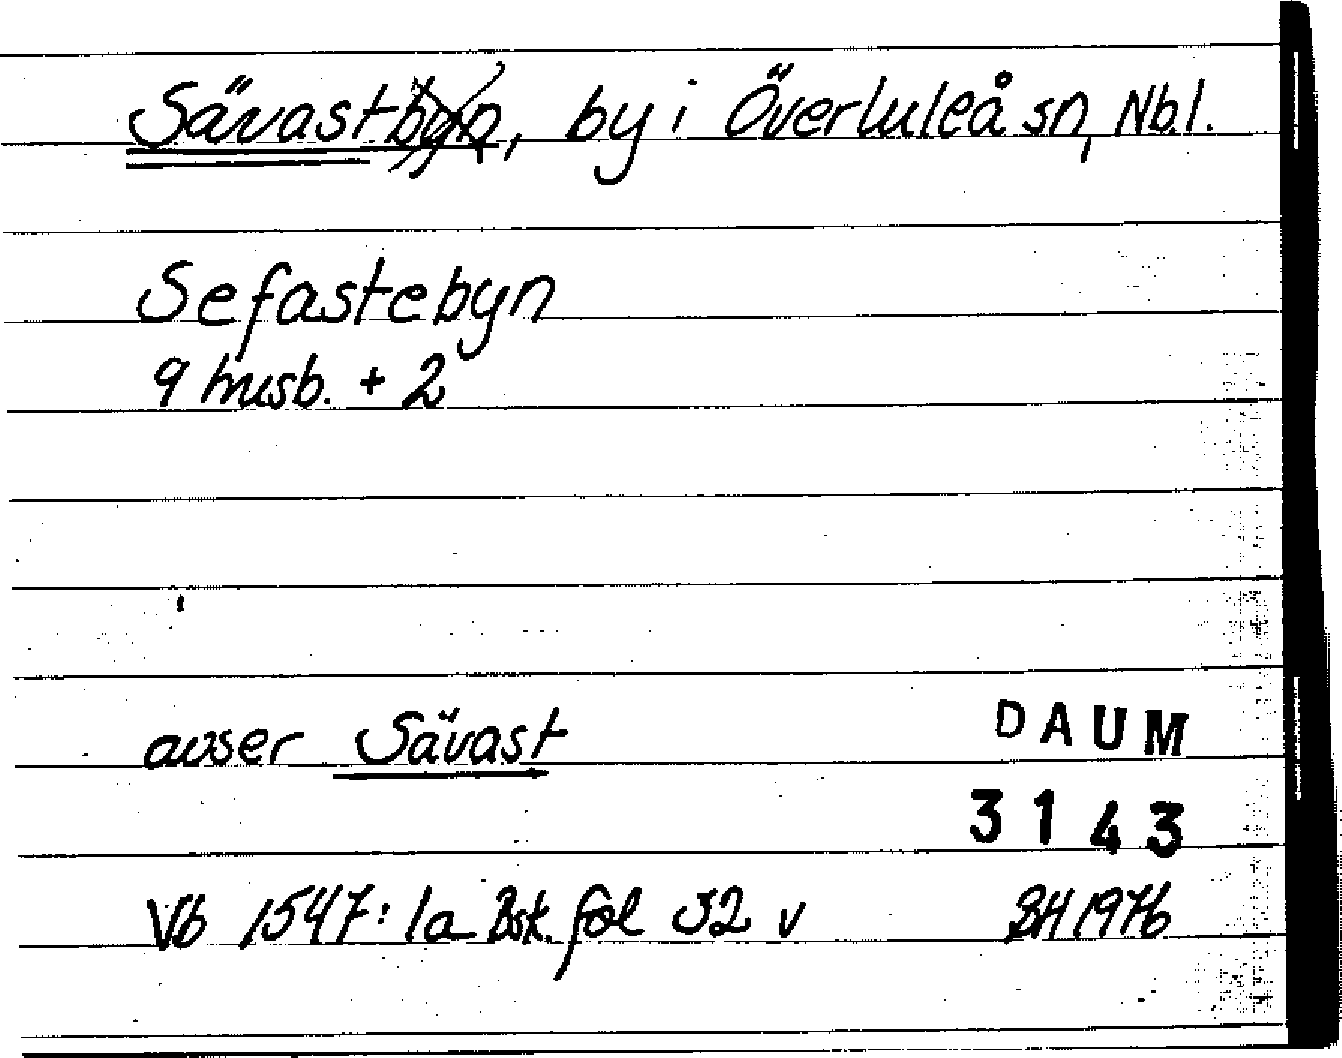 Sävastbyn, by i Överluleå sn, Nb.l.
Sefastebyn
9 husb. + 2
avser Sävast
DAUM
3143
Vb 1547: 1a Bsk. fol 32 v
BH 1976